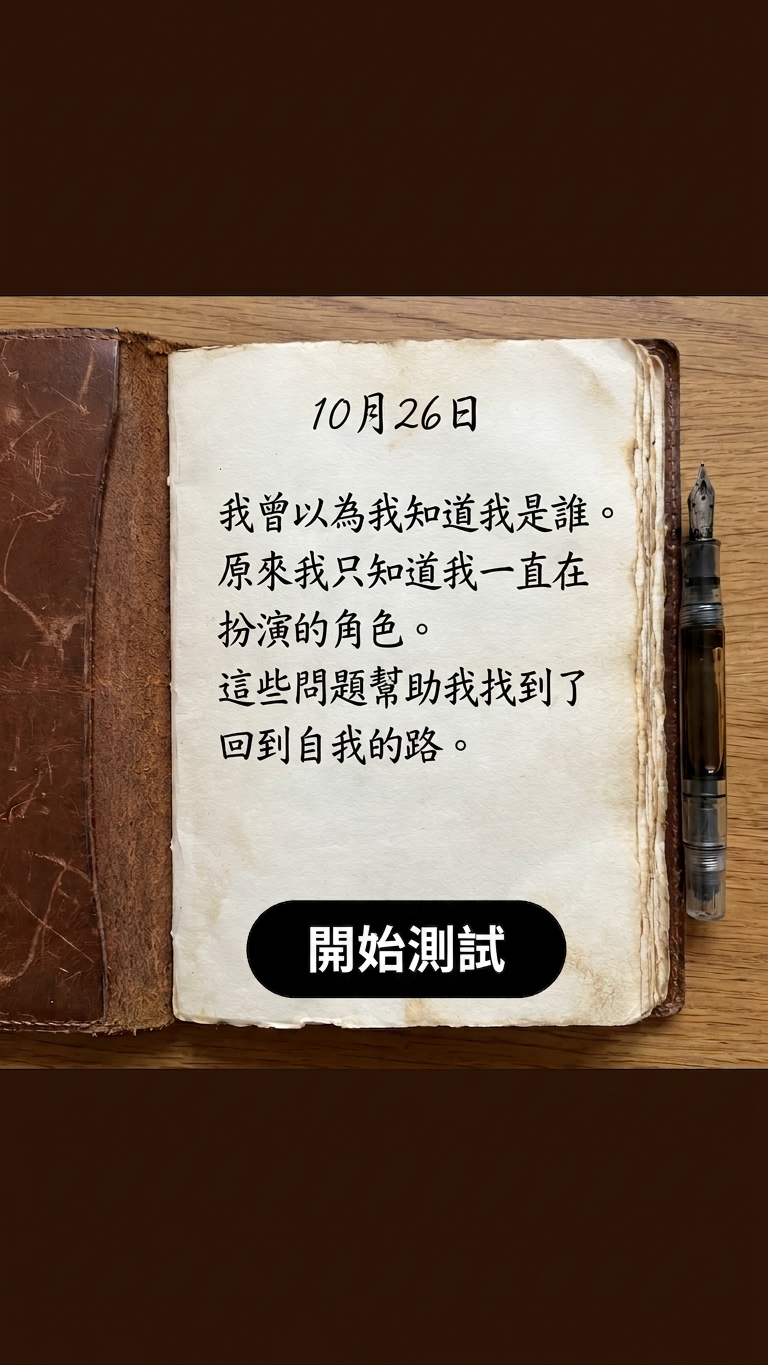 10月26日
我曾以為我知道我是誰。
原來我只知道我一直在
扮演的角色。
這些問題幫助我找到了
回到自我的路。
開始測試